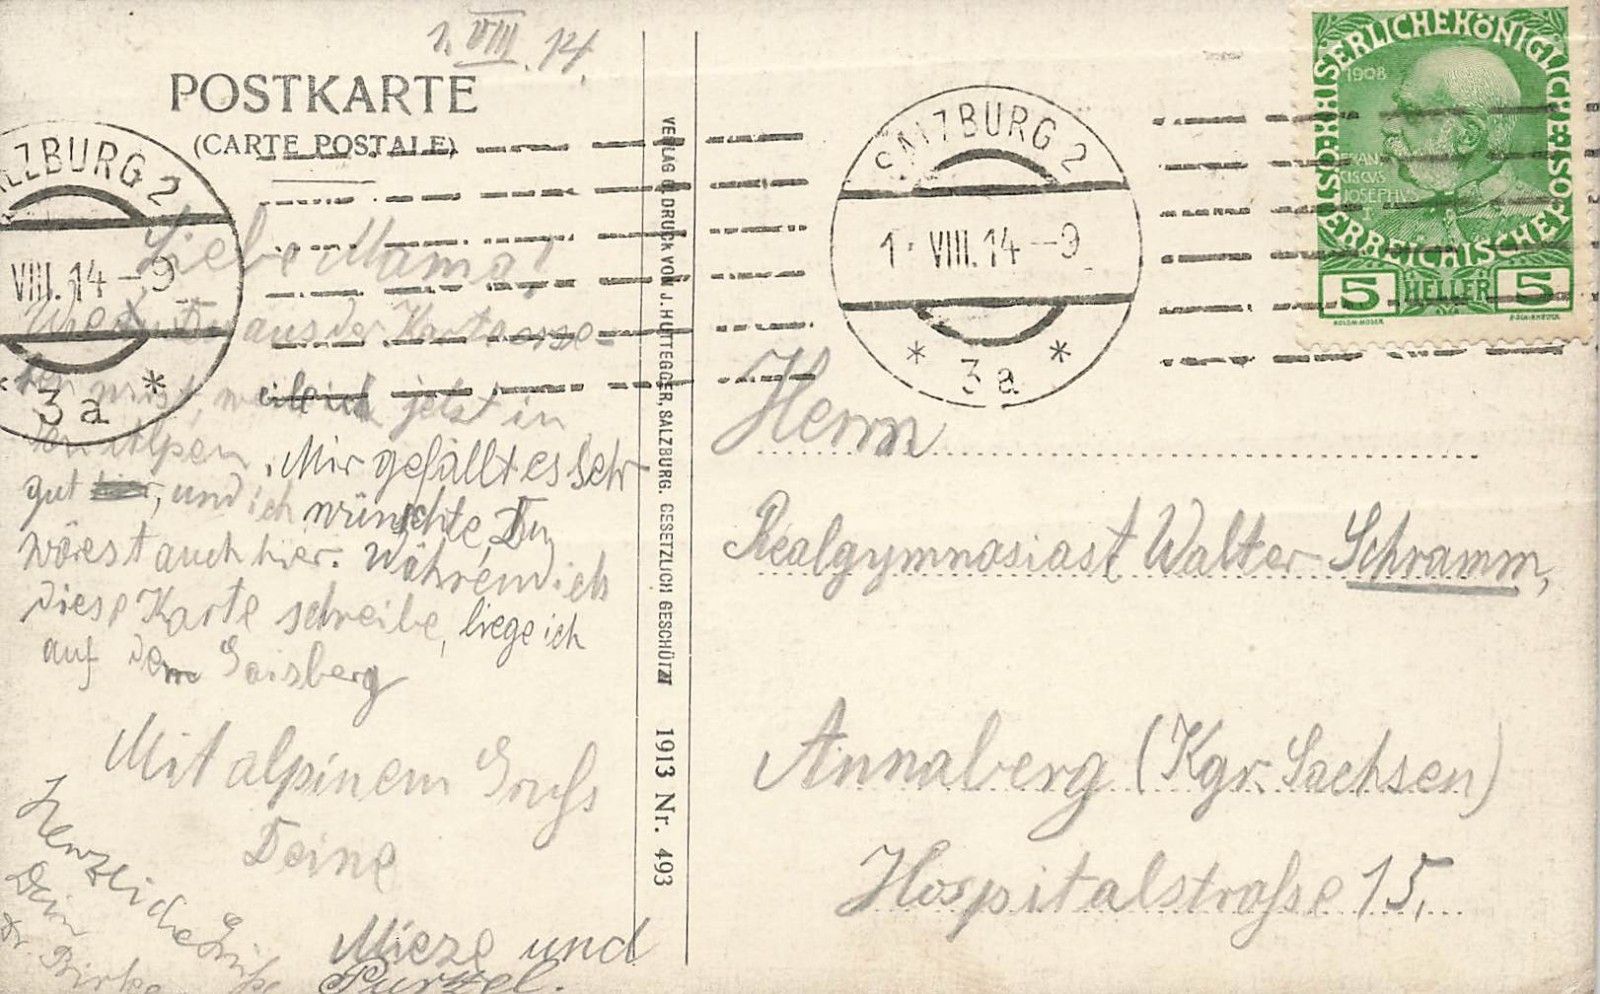 1. VIII. 14.
POSTKARTE
(CARTE POSTALE)
ALZBURG 2
VIII. 14 - 9
* 3a *
Liebe Mama!
aus der Karte
nist, weil ich jetzt in
den Alpen. Mir gefällt es sehr
gut, und ich wünschte, Du
wärest auch hier. Während ich
diese Karte schreibe, liege ich
auf dem Gaisberg
Mit alpinem Gruß
Deine
Mieze und
Purzel.
Herzliche Grüße
Dein
Dr. Birke
VERLAG U. DRUCK VON J. HUTTEGGER, SALZBURG. GESETZLICH GESCHÜTZT 1913 Nr. 493
SALZBURG 2
1. VIII. 14 - 9
* 3a *
KAISERLICHE KÖNIGLICHE ÖSTERREICHISCHE POST
1908
FRAN
CISCVS
JOSEPHVS
I
5 HELLER 5
Herrn
Realgymnasiast Walter Schramm,
Annaberg (Kgr. Sachsen)
Hospitalstraße 15.